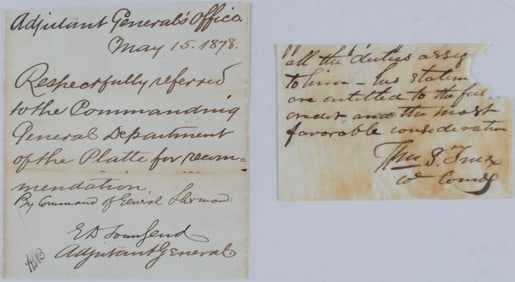 Adjutant General's Office,
May 15. 1878.
Respectfully referred
to the Commanding
General Department
of the Platte for recom-
mendation.
By Command of General Sherman:
E D Townsend
Adjutant General
all the duties assig
to him – his statem
are entitled to the full
credit, and the most
favorable consideration